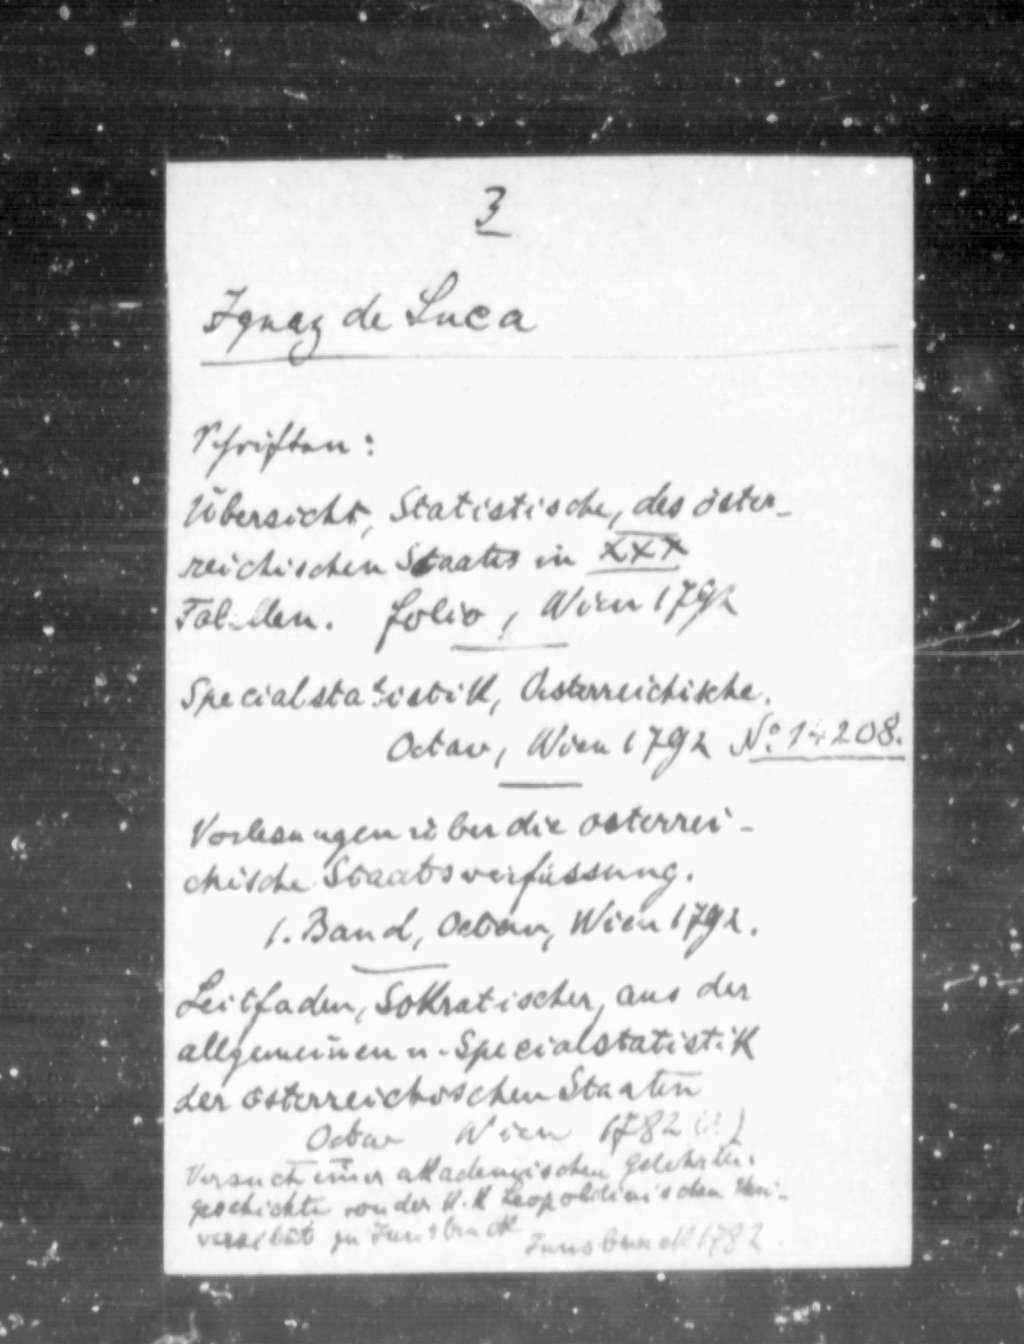 3
Ignaz de Luca
Schriften:
Übersicht, Statistische, des öster-
reichischen Staates in XXX
Tabellen. folio, Wien 1792
Specialstatistik, Österreichische.
Octav, Wien 1792 No. 14208.
Vorlesungen über die österrei-
chische Staatsverfassung.
1. Band, Octav, Wien 1792.
Leitfaden, Sokratischer, aus der
allgemeinen u. Specialstatistik
der österreichischen Staaten
Octav Wien 1782 (?)
Versuch einer akademischen Gelehrten-
geschichte von der K.K Leopoldinischen Uni-
versität zu Innsbruck
Innsbruck 1782